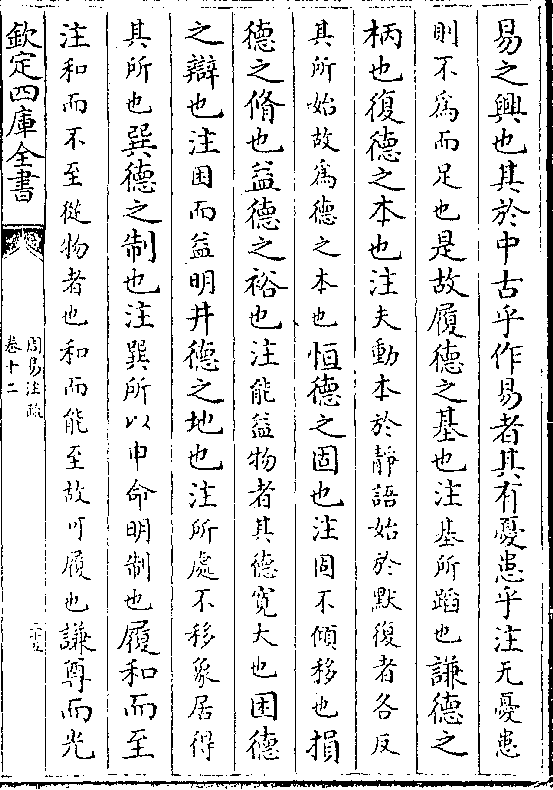 易之興也其於中古乎作易者其有憂患乎注无憂患
則不為而足也是故履德之基也注基所蹈也謙德之
柄也復德之本也注夫動本於靜語始於默復者各反
其所始故為德之本也恒德之固也注固不傾移也損
德之脩也益德之裕也注能益物者其德寛大也困德
之辯也注困而益明井德之地也注所處不移象居得
其所也巽德之制也注巽所以申命明制也履和而至
注和而不至從物者也和而能至故可履也謙尊而光
欽定四庫全書
周易注疏
卷十二